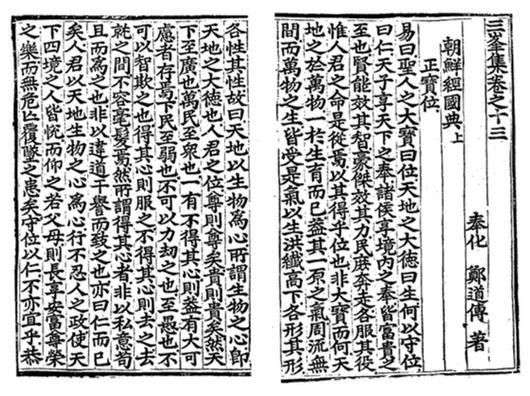 三峯集卷之十三
奉化 鄭道傳 著
朝鮮經國典上
正寶位
易曰聖人之大寶曰位天地之大德曰生何以守位
曰仁天子享天下之奉諸侯享境內之奉皆富貴之
至也賢能效其智豪傑效其力民庶奔走各服其役
惟人君之命是從焉以其得乎位也非大寶而何天
地之於萬物一於生育而已盖其一原之氣周流無
間而萬物之生皆受是氣以生洪纖高下各形其形
各性其性故曰天地以生物爲心所謂生物之心卽
天地之大德也人君之位尊則尊矣貴則貴矣然天
下至廣也萬民至衆也一有不得其心則盖有大可
慮者存焉下民至弱也不可以力劫之也至愚也不
可以智欺之也得其心則服之不得其心則去之去
就之間不容毫髮焉然所謂得其心者非以私意苟
且而爲之也非以違道干譽而致之也亦曰仁而已
矣人君以天地生物之心爲心行不忍人之政使天
下四境之人皆悅而仰之若父母則長享安富尊榮
之樂而無危亡覆墜之患矣守位以仁不亦宜乎恭